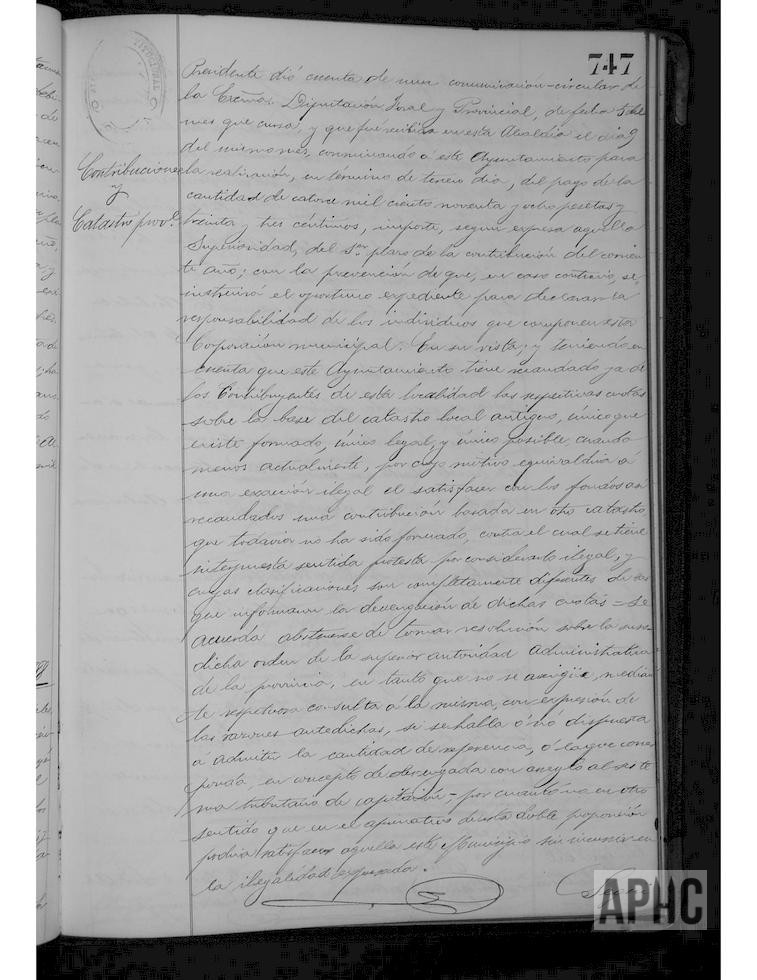 747
Presidente dió cuenta de una comunicación-circular de
la Excma. Diputación Foral y Provincial, de fecha 5 del
mes que cursa, y que fué recibida en esta Alcaldía el dia 9
del mismo mes, conminando á este Ayuntamiento para
Contribuciones
y
Catastro prov.l
la realización, en término de tercero dia, del pago de la
cantidad de catorce mil ciento noventa y ocho pesetas y
treinta y tres céntimos, importe, segun expresa aquella
Superioridad, del 1.er plazo de la contribución del corrien-
te año; con la prevención de que, en caso contrario, se
instruirá el oportuno expediente para declarar la
responsabilidad de los individuos que componen esta
Corporación municipal. En su vista, y teniendo en
cuenta que este Ayuntamiento tiene recaudado ya de
los Contribuyentes de esta localidad las respectivas cuotas
sobre la base del catastro local antiguo, único que
existe formado, único legal, y único posible, cuando
menos actualmente, por cuyo motivo equivaldría á
una exacción ilegal el satisfacer con los fondos así
recaudados una contribución basada en otro catastro
que todavia no ha sido formado, contra el cual se tiene
interpuesta sentida protesta por considerarlo ilegal, y
cuyas clasificaciones son completamente diferentes de las
que informaron la devengación de dichas cuotas = se
acuerda abstenerse de tomar resolución sobre la suso-
dicha orden de la superior autoridad administrativa
de la provincia, en tanto que no se averigüe, median-
te respetuosa consulta á la misma, con expresión de
las razones antedichas, si se halla ó nó dispuesta
á admitir la cantidad de referencia, ó la que corres-
ponda, en concepto de devengada con arreglo al siste-
ma tributario de capitación - por cuanto no en otro
sentido que en el afirmativo de esta doble proposición
podria satisfacer aquella este Municipio sin incurrir en
la ilegalidad expresada.
APHC